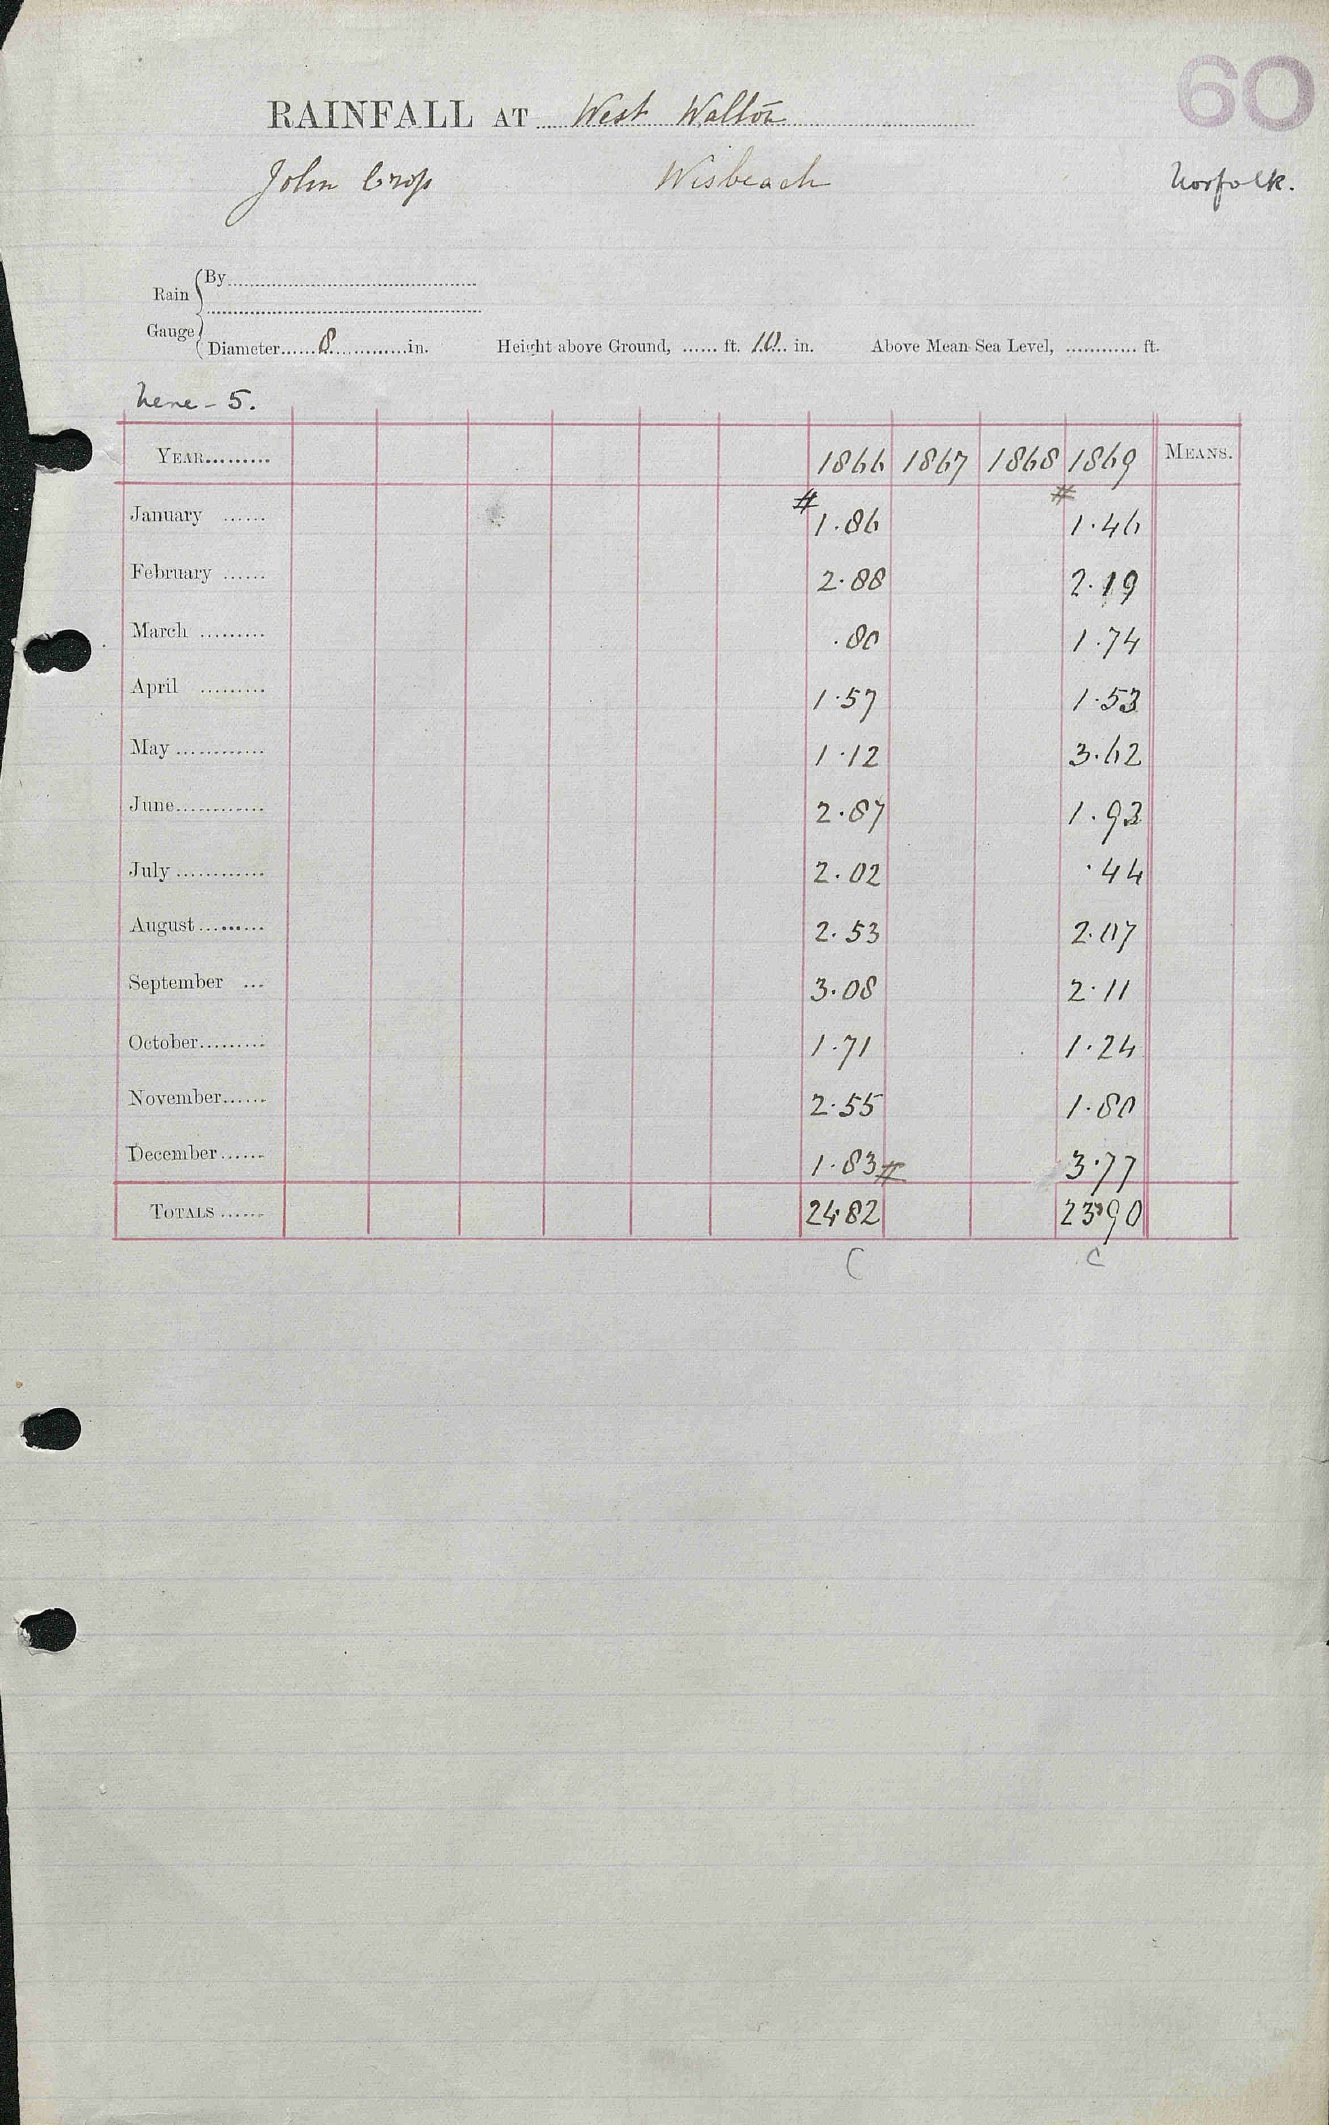 60
RAINFALL AT West Walton
John Crop Wisbeach Norfolk.
Rain Gauge { By
Diameter......8............in. Height above Ground, ...... ft. 10 in. Above Mean Sea Level, ............ ft.
Nene - 5.
YEAR......... 1866 1867 1868 1869 MEANS.
January ...... # 1.86 # 1.46
February ...... 2.88 2.19
March ......... .80 1.74
April ......... 1.57 1.53
May ............ 1.12 3.62
June............ 2.87 1.93
July ............ 2.02 .44
August......... 2.53 2.07
September ... 3.08 2.11
October......... 1.71 1.24
November...... 2.55 1.80
December...... 1.83 # 3.77
TOTALS ...... 24.82 23.90
C C